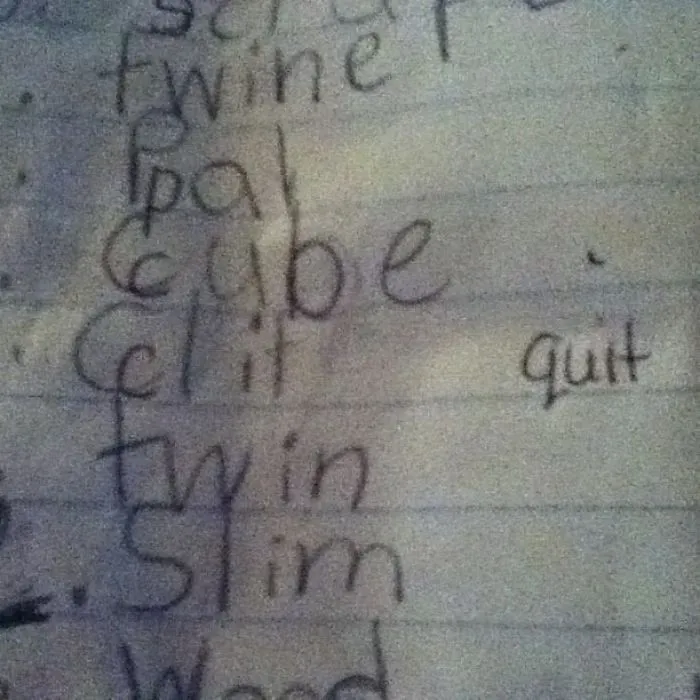 twine
Ppal
Ccube
Cclit quit
twin
Slim